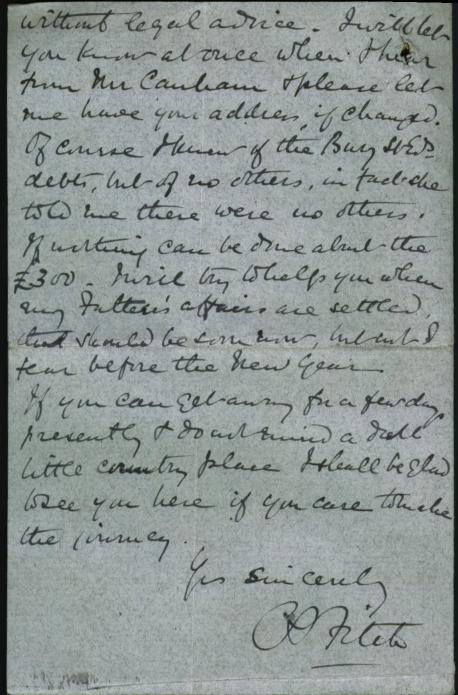 without legal advice. I will let
you know at once when I hear
from Mr Canham & please let
me have your address, if changed.
Of course I knew of the Bury St Eds
debts, but of no others, in fact she
told me there were no others.
If nothing can be done about the
£300. I will try to help you when
my Father's affairs are settled,
that should be soon now, but not I
fear before the New Year.
If you can get away for a few days
presently & do not mind a dull
little country place I shall be glad
to see you here if you care to make
the journey.
Yrs sincerely
Fitch